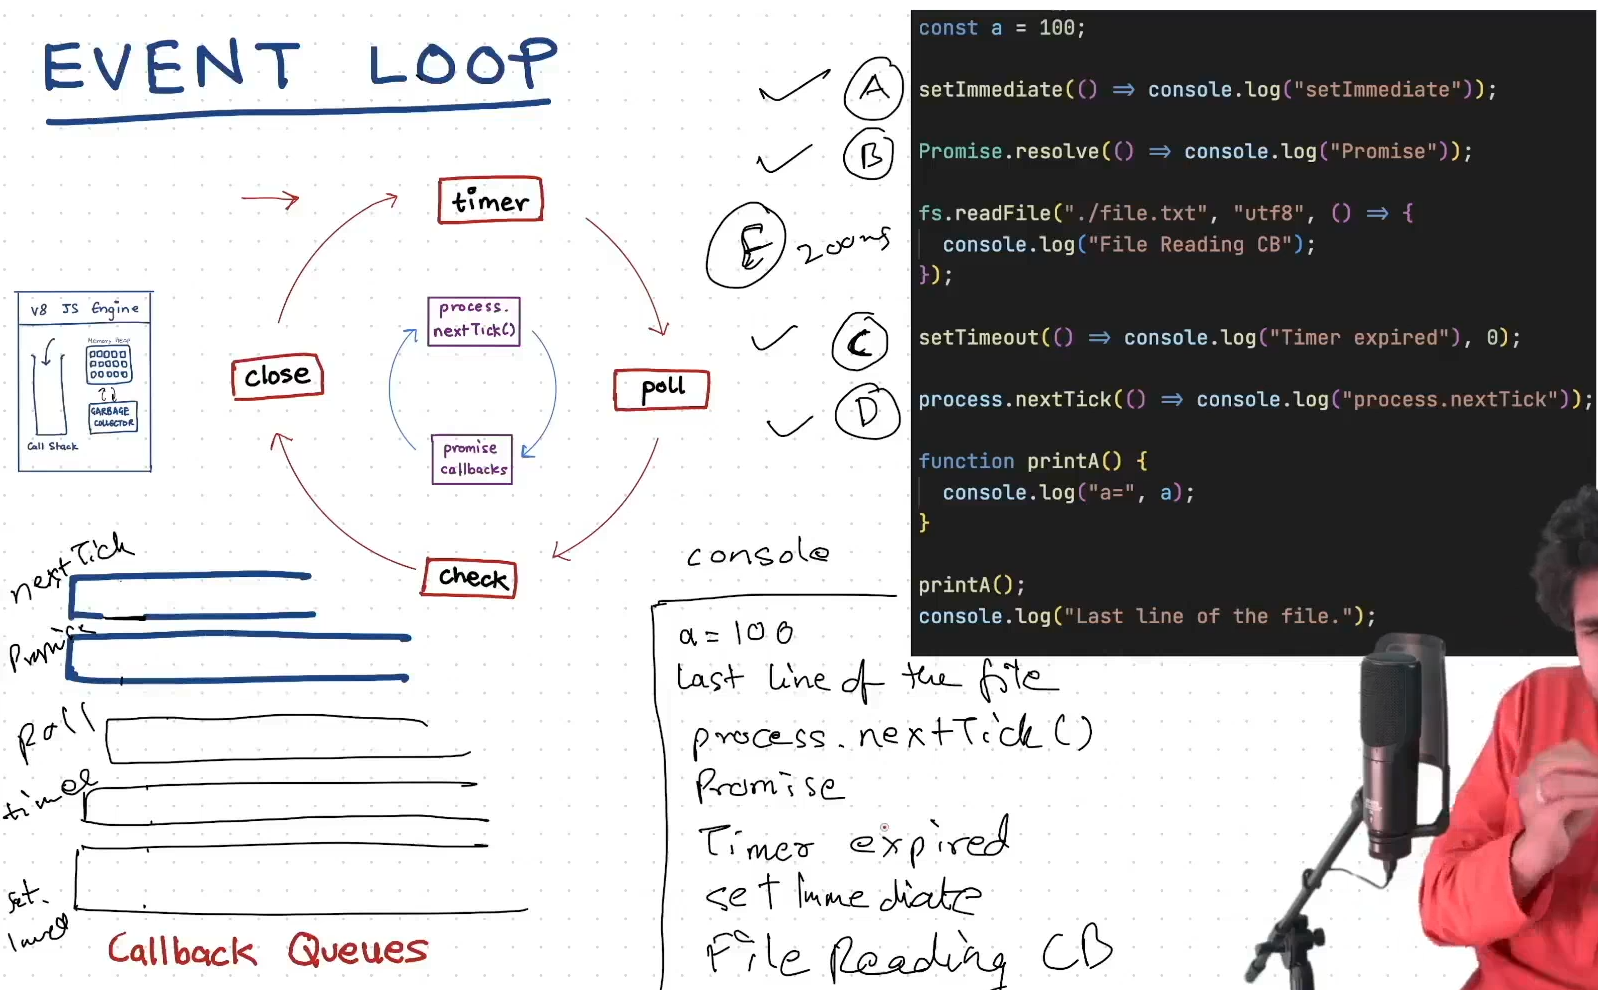 EVENT LOOP
timer
process.
nextTick()
promise
callbacks
close
poll
check
V8 JS Engine
Memory Heap
GARBAGE
COLLECTOR
Call Stack
A
B
E 200ms
C
D
nextTick
Promise
poll
timer
set.
Immed
Callback Queues
console
a = 100
last line of the file
process.nextTick()
Promise
Timer expired
set Immediate
File Reading CB
const a = 100;
setImmediate(() => console.log("setImmediate"));
Promise.resolve(() => console.log("Promise"));
fs.readFile("./file.txt", "utf8", () => {
console.log("File Reading CB");
});
setTimeout(() => console.log("Timer expired"), 0);
process.nextTick(() => console.log("process.nextTick"));
function printA() {
console.log("a=", a);
}
printA();
console.log("Last line of the file.");